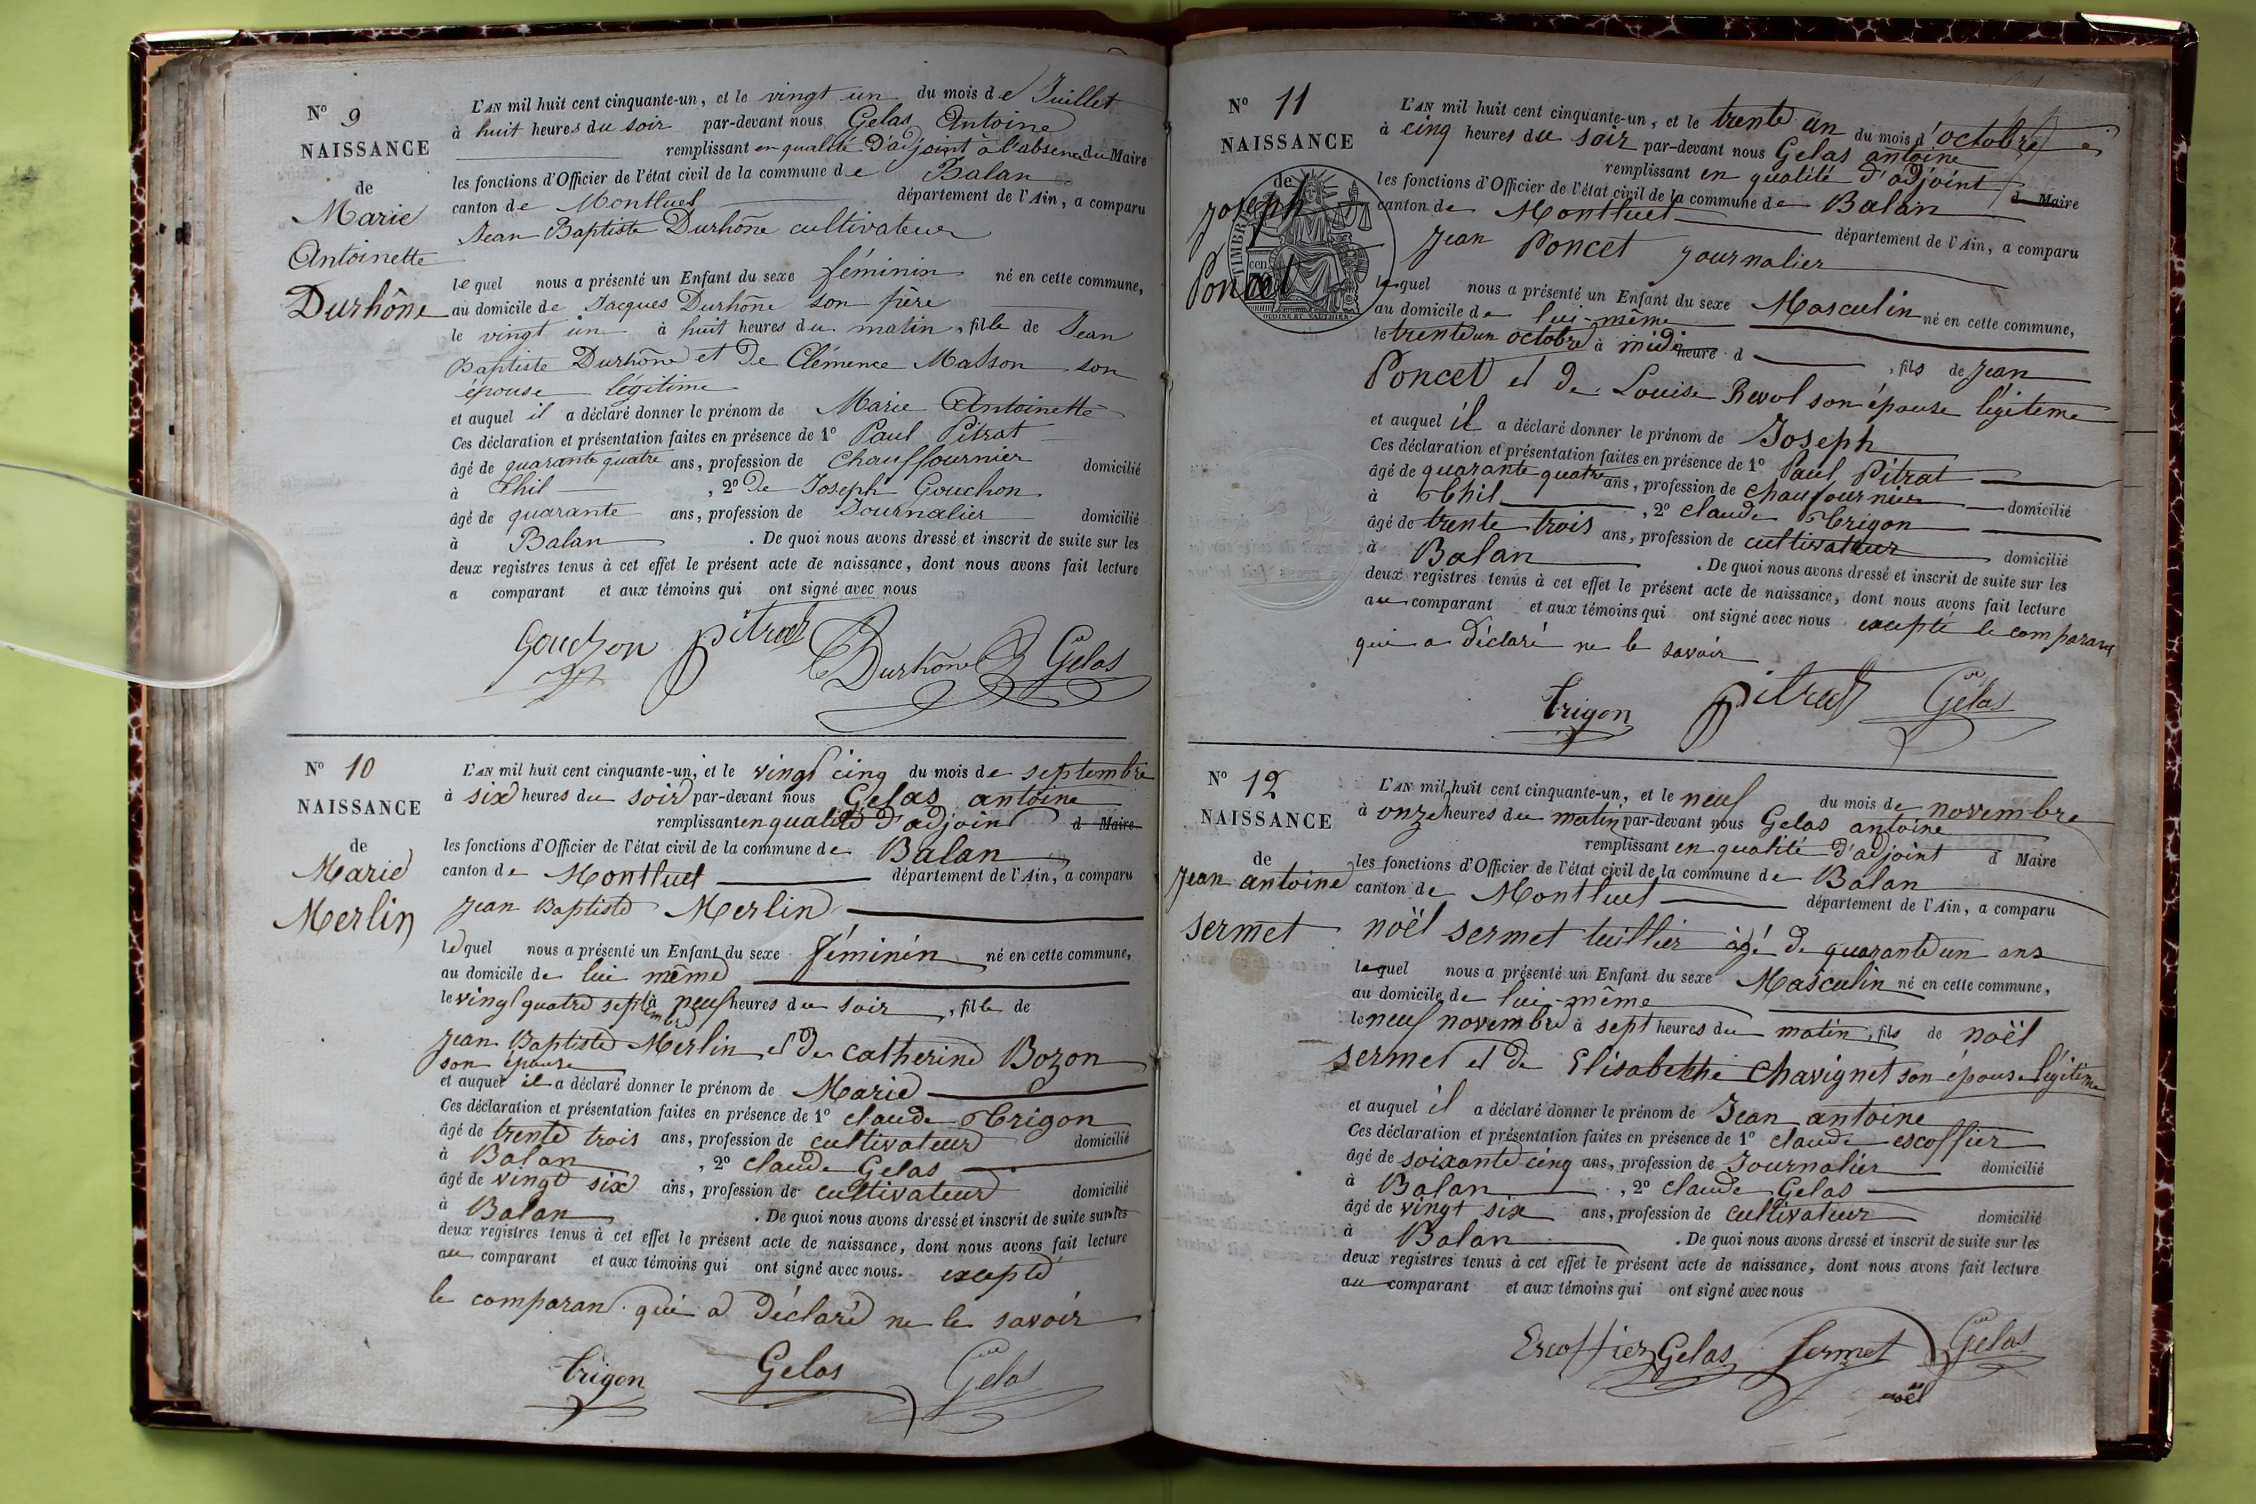 N° 9
NAISSANCE
de
Marie
Antoinette
Durhône
L'AN mil huit cent cinquante-un, et le vingt un du mois de Juillet
à huit heures du soir par-devant nous Gelas Antoine
remplissant en qualité d'adjoint à l'absence du Maire
les fonctions d'Officier de l'état civil de la commune de Balan
canton de Montluel département de l'Ain, a comparu
Jean Baptiste Durhône cultivateur
lequel nous a présenté un Enfant du sexe féminin né en cette commune,
au domicile de Jacques Durhône son père
le vingt un à huit heures du matin, fille de Jean
Baptiste Durhône et de Clémence Masson son
épouse légitime
et auquel il a déclaré donner le prénom de Marie Antoinette
Ces déclaration et présentation faites en présence de 1° Paul Pitrat
âgé de quarante quatre ans, profession de Chauffournier domicilié
à Thil , 2° de Joseph Gouchon
âgé de quarante ans, profession de Journalier domicilié
à Balan . De quoi nous avons dressé et inscrit de suite sur les
deux registres tenus à cet effet le présent acte de naissance, dont nous avons fait lecture
a comparant et aux témoins qui ont signé avec nous
Gouchon Pitrat Durhône Gelas
N° 10
NAISSANCE
de
Marie
Merlin
L'AN mil huit cent cinquante-un, et le vingt cinq du mois de septembre
à six heures du soir par-devant nous Gelas antoine
remplissant en qualité d'adjoint d Maire
les fonctions d'Officier de l'état civil de la commune de Balan
canton de Montluel département de l'Ain, a comparu
Jean Baptiste Merlin
lequel nous a présenté un Enfant du sexe féminin né en cette commune,
au domicile de lui même
le vingt quatre septembre à neuf heures du soir, fille de
Jean Baptiste Merlin et de catherine Bozon
son épouse
et auquel il a déclaré donner le prénom de Marie
Ces déclaration et présentation faites en présence de 1° claude Trigon
âgé de trente trois ans, profession de cultivateur domicilié
à Balan , 2° claude Gelas
âgé de vingt six ans, profession de cultivateur domicilié
à Balan . De quoi nous avons dressé et inscrit de suite sur les
deux registres tenus à cet effet le présent acte de naissance, dont nous avons fait lecture
au comparant et aux témoins qui ont signé avec nous. excepté
le comparant qui a déclaré ne le savoir
trigon Gelas Gelas
N° 11
NAISSANCE
de
joseph
Poncet
TIMBRE
L'AN mil huit cent cinquante-un, et le trente un du mois d'octobre
à cinq heures du soir par-devant nous Gelas antoine
remplissant en qualité d'adjoint d Maire
les fonctions d'Officier de l'état civil de la commune de Balan
canton de Montluel département de l'Ain, a comparu
Jean Poncet journalier
lequel nous a présenté un Enfant du sexe Masculin né en cette commune,
au domicile de lui-même
le trente un octobre à midi heure d , fils de Jean
Poncet et de Louise Revol son épouse légiteme
et auquel il a déclaré donner le prénom de Joseph
Ces déclaration et présentation faites en présence de 1° Paul Pitrat
âgé de quarante quatre ans, profession de chaufournier domicilié
à Thil , 2° claude Trigon
âgé de trente trois ans, profession de cultivateur domicilié
à Balan . De quoi nous avons dressé et inscrit de suite sur les
deux registres tenus à cet effet le présent acte de naissance, dont nous avons fait lecture
au comparant et aux témoins qui ont signé avec nous excepté le comparant
qui a déclaré ne le savoir
trigon Pitrat Gelas
N° 12
NAISSANCE
de
Jean antoine
sermet
L'AN mil huit cent cinquante-un, et le neuf du mois de novembre
à onze heures du matin par-devant nous Gelas antoine
remplissant en qualité d'adjoint d Maire
les fonctions d'Officier de l'état civil de la commune de Balan
canton de Montluel département de l'Ain, a comparu
noël sermet tuillier âgé de quarante un ans
lequel nous a présenté un Enfant du sexe Masculin né en cette commune,
au domicile de lui-même
le neuf novembre à sept heures du matin, fils de noël
sermet et de Elisabethe Chavignet son épouse légitime
et auquel il a déclaré donner le prénom de Jean antoine
Ces déclaration et présentation faites en présence de 1° claude escoffier
âgé de soixante cinq ans, profession de Journalier domicilié
à Balan , 2° claude Gelas
âgé de vingt six ans, profession de cultivateur domicilié
à Balan . De quoi nous avons dressé et inscrit de suite sur les
deux registres tenus à cet effet le présent acte de naissance, dont nous avons fait lecture
au comparant et aux témoins qui ont signé avec nous
Escoffier Gelas Sermet Gelas
noël